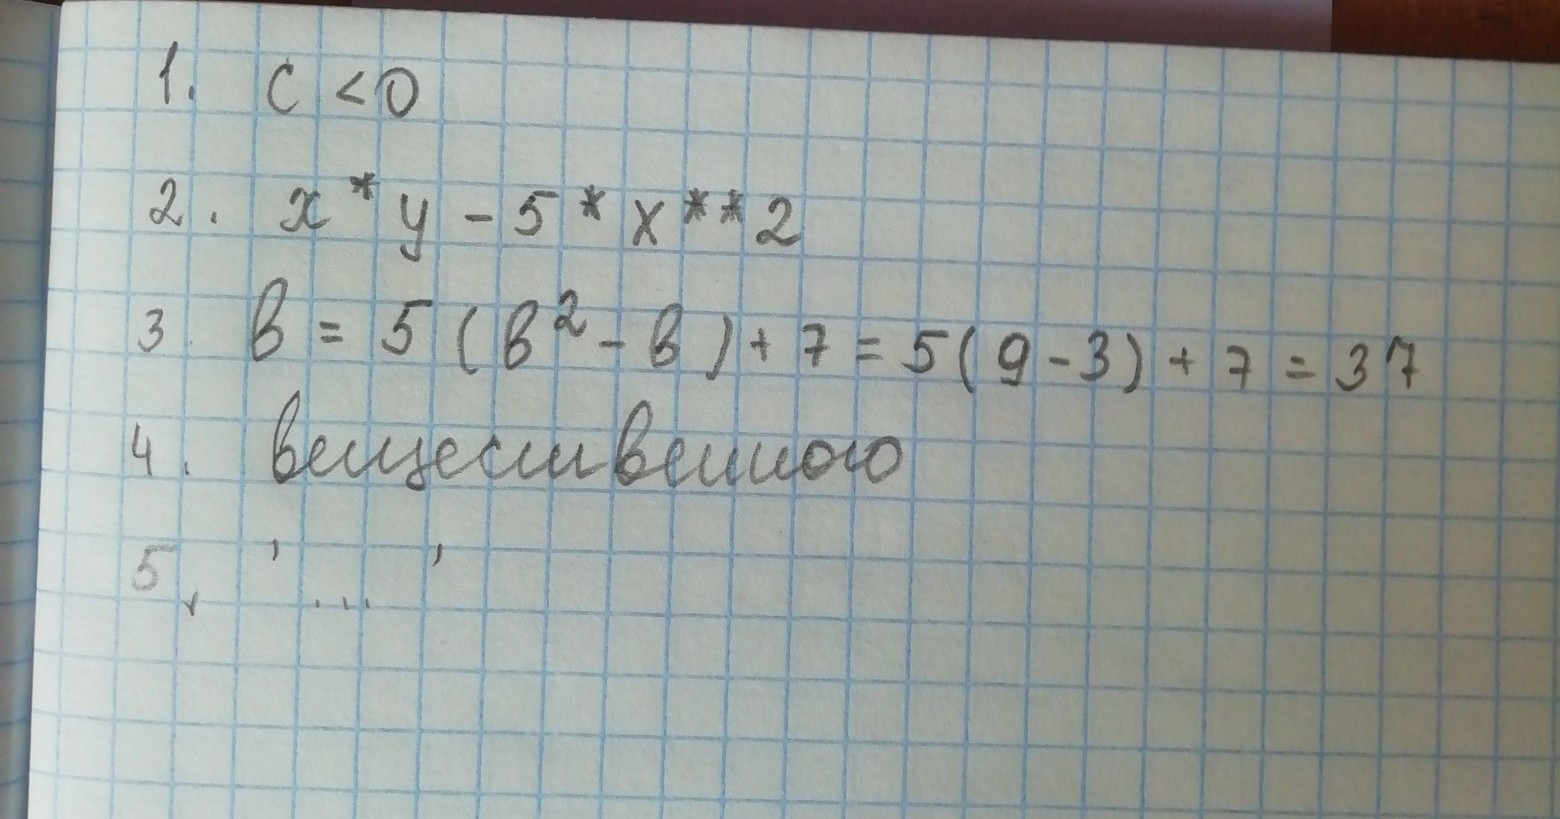 1. c < 0
2. x * y - 5 * x ** 2
3. в = 5 (в² - в) + 7 = 5 (9 - 3) + 7 = 37
4. вещественного
5. ' ... '